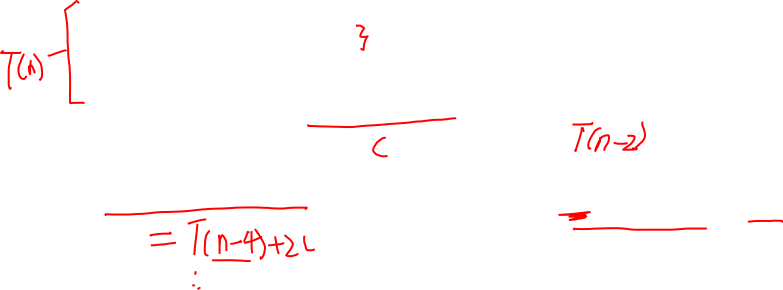 }
T(n)
c
T(n-2)
= T(n-4)+2c
: